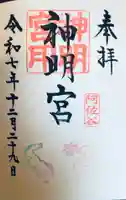 奉拝
神明宮
阿佐谷
令和七年十二月二十九日